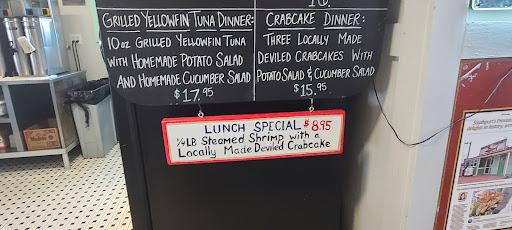 GRILLED YELLOWFIN TUNA DINNER:
10oz GRILLED YELLOWFIN TUNA
WITH HOMEMADE POTATO SALAD
AND HOMEMADE CUCUMBER SALAD
$17.95
CRABCAKE DINNER:
THREE LOCALLY MADE
DEVILED CRABCAKES WITH
POTATO SALAD & CUCUMBER SALAD
$15.95
LUNCH SPECIAL $8.95
1/4 LB Steamed Shrimp with a
Locally Made Deviled Crabcake